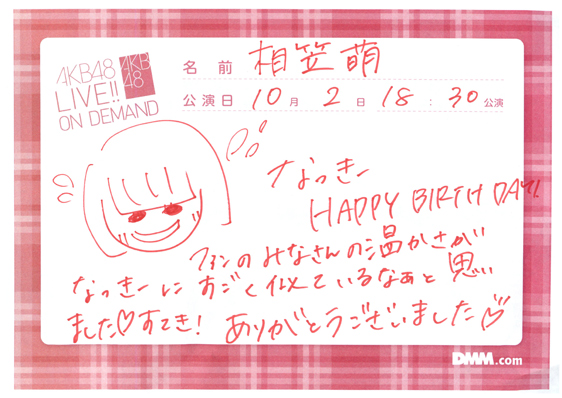 AKB48
LIVE!!
ON DEMAND
AKB
48
名前 相笠萌
公演日 10月 2日 18:30公演
なっきー
HAPPY BIRTH DAY!!
ファンのみなさんの温かさが
なっきーにすごく似ているなぁと思い
ました♡すてき! ありがとうございました♡
DMM.com